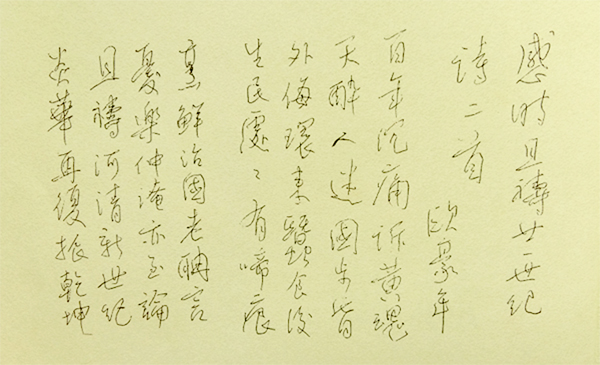 感時且禱廿一世紀
詩二首
歐豪年
百年沉痛訴黃魂
天醉人迷國步昏
外侮環來蠶食後
生民處〻有啼痕
烹鮮治國老聃言
憂樂仲淹亦至論
且禱河清新世紀
炎華再復振乾坤